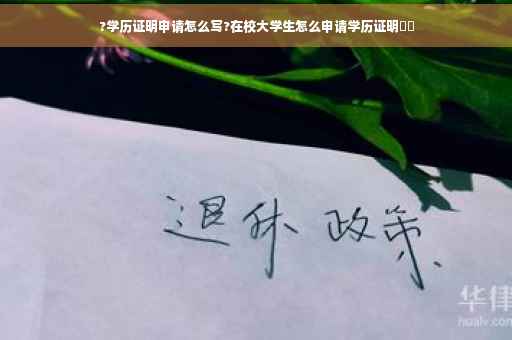 ?学历证明申请怎么写?在校大学生怎么申请学历证明
退休 政策
华律
hualv.com